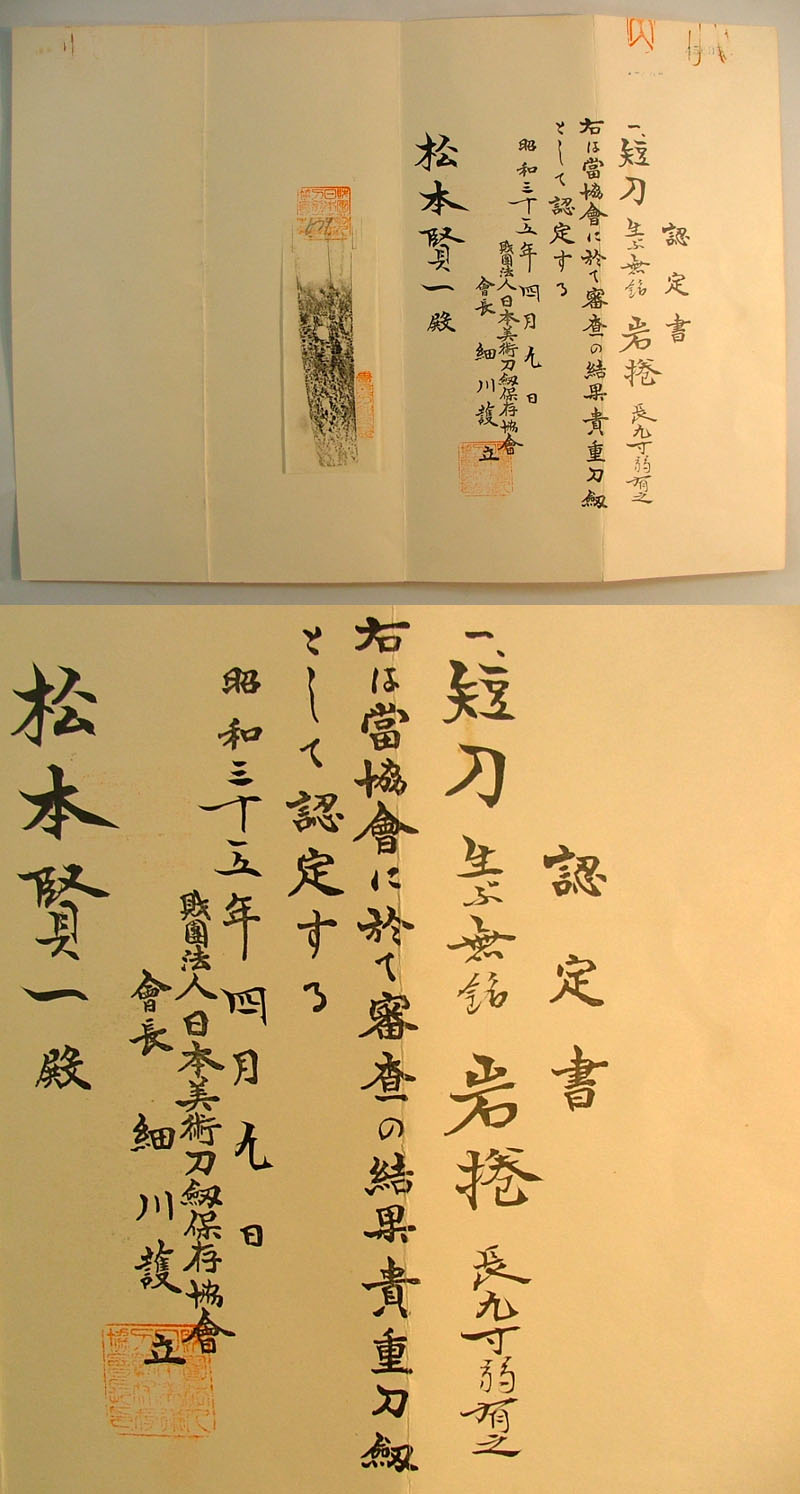 認定書
一、短刀 生ぶ無銘 岩捲 長九寸弱有之
右は當協會に於て審査の結果貴重刀劔
として認定する
昭和三十五年四月九日
財團法人日本美術刀劔保存協會
會長 細川護立
松本賢一殿
認定書
一、短刀 生ぶ無銘 岩捲 長九寸弱有之
右は當協會に於て審査の結果貴重刀劔
として認定する
昭和三十五年四月九日
財團法人日本美術刀劔保存協會
會長 細川護立
松本賢一殿